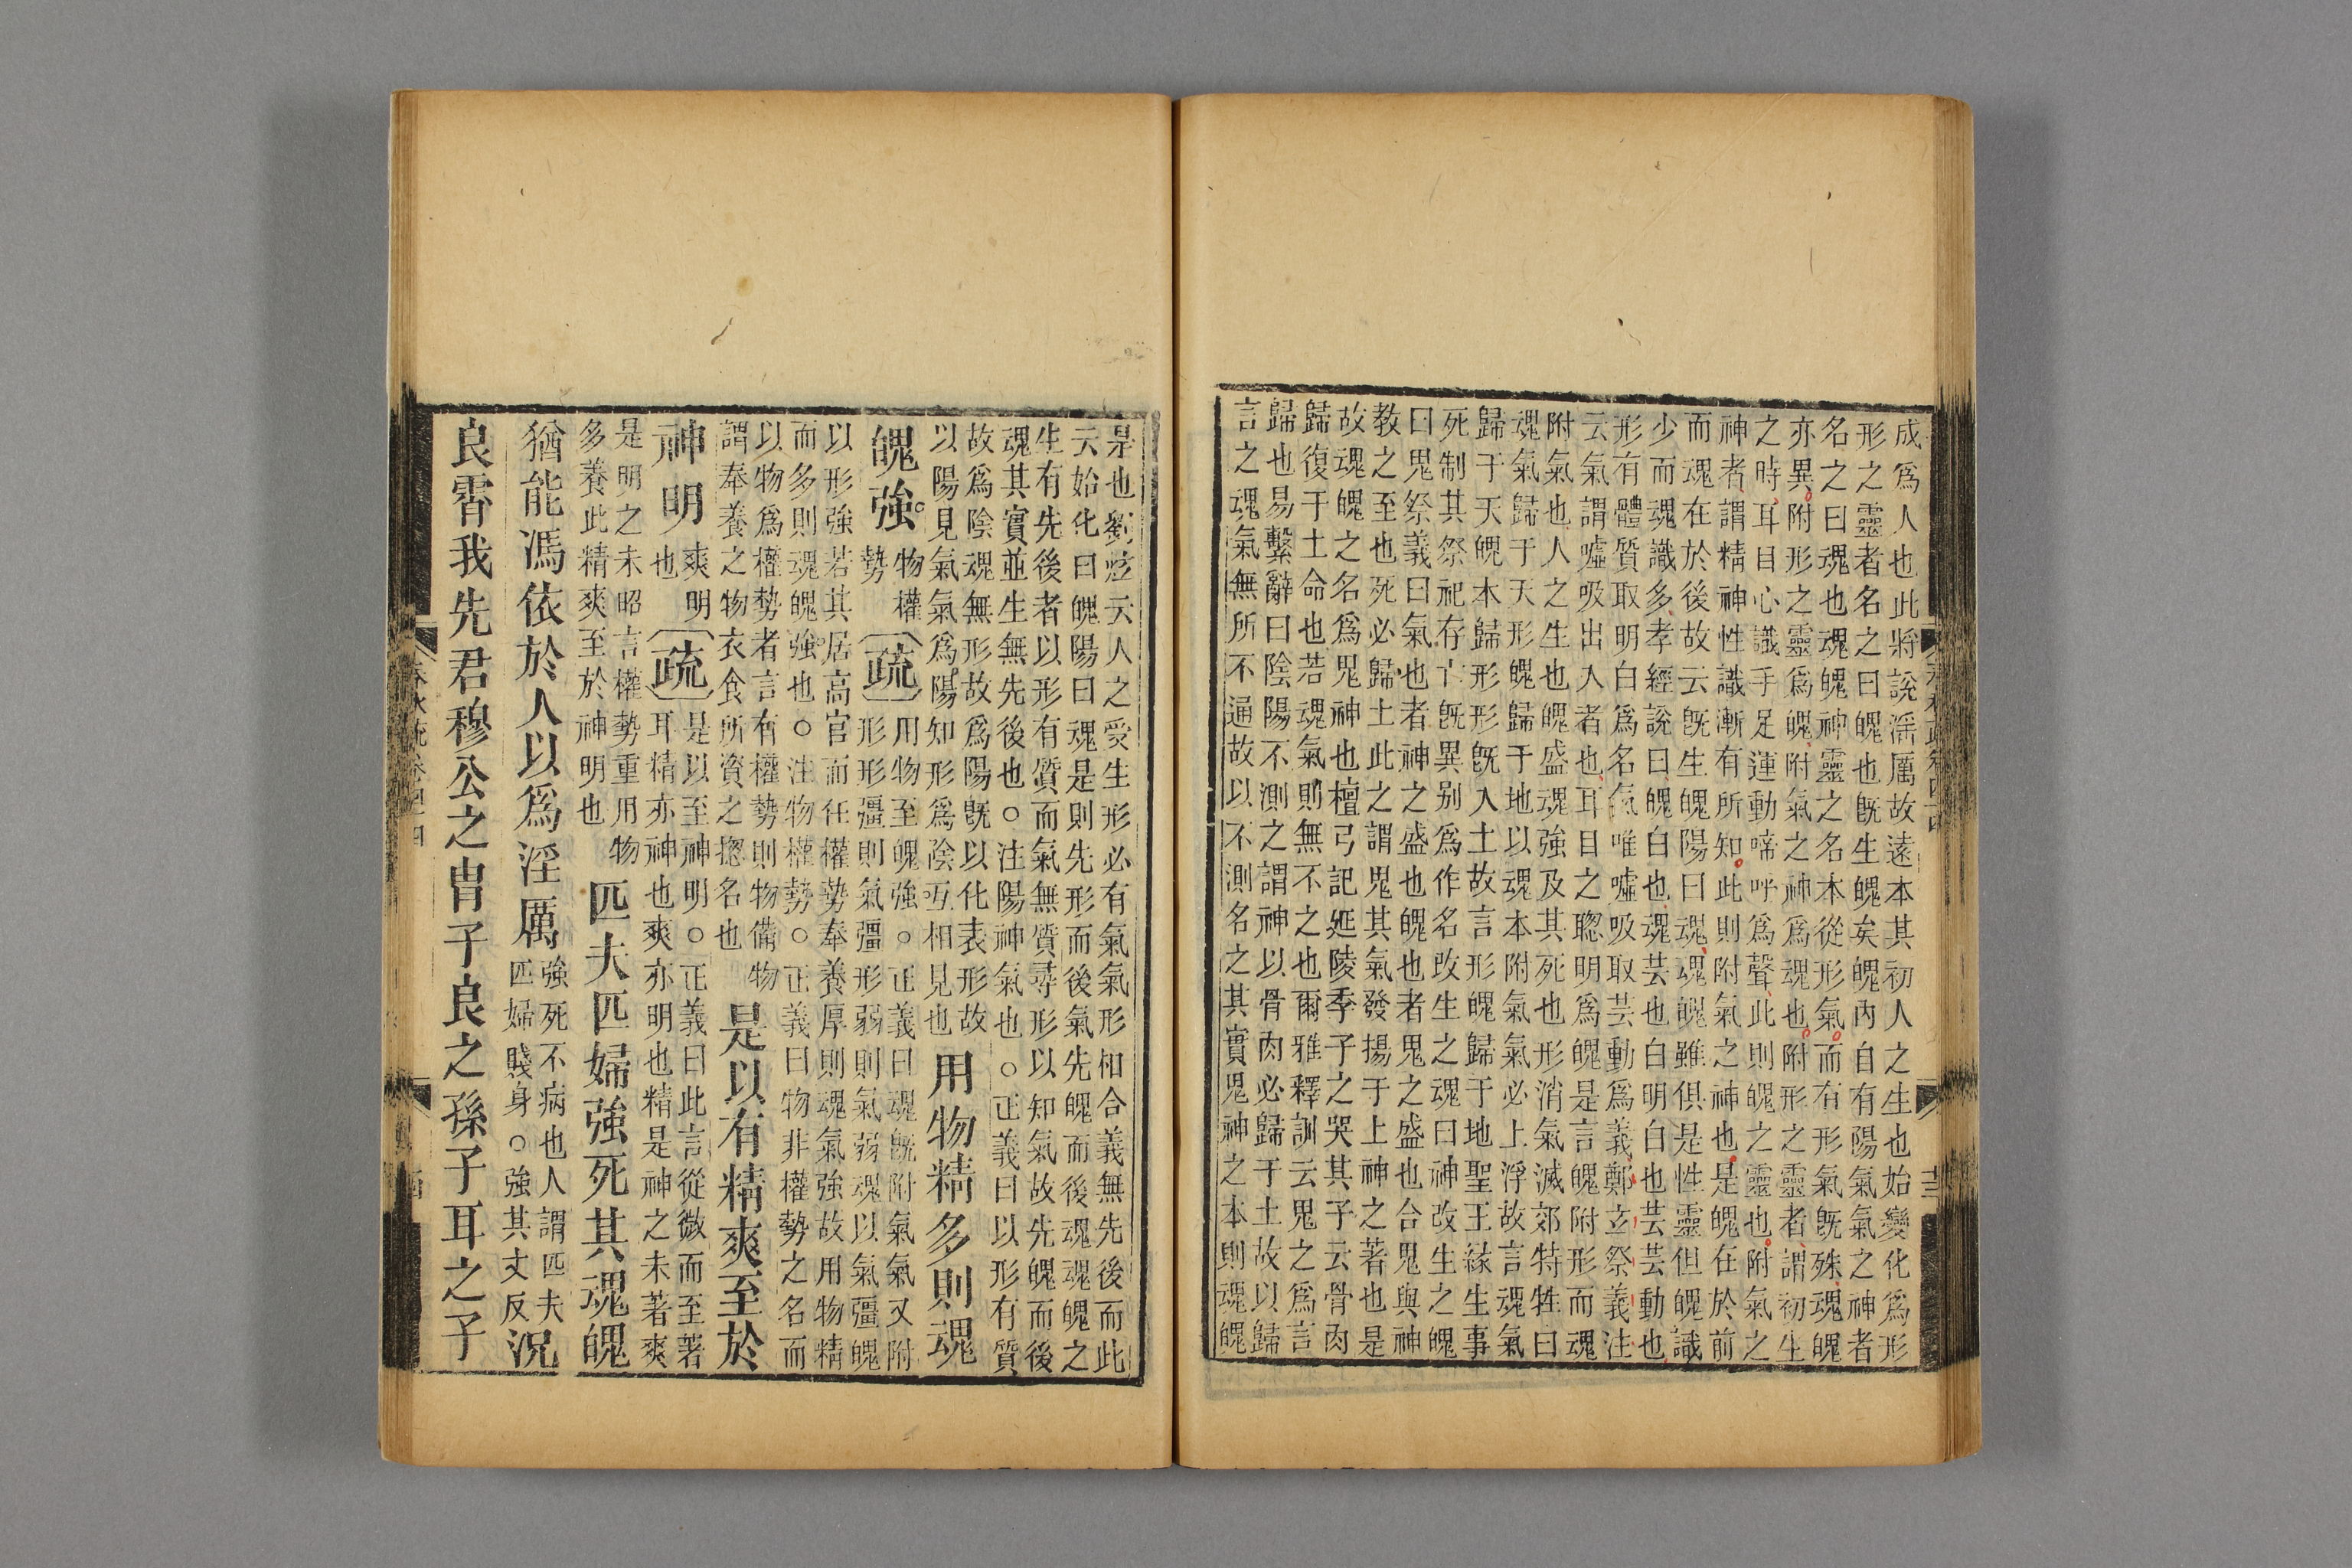 成爲人也此將說淫厲故遠本其初人之生也始變化爲形
形之靈者名之曰魄也旣生魄矣魄內自有陽氣氣之神者
名之曰魂也魂魄神靈之名本從形氣而有形氣旣殊魂魄
亦異附形之靈爲魄附氣之神爲魂也附形之靈者謂初生
之時耳目心識手足運動啼呼爲聲此則魄之靈也附氣之
神者謂精神性識漸有所知此則附氣之神也是魄在於前
而魂在於後故云旣生魄陽曰魂魂魄雖俱是性靈但魄識
少而魂識多孝經說曰魄白也魂芸也白明白也芸芸動也
形有體質取明白爲名氣唯噓吸取芸動爲義鄭玄祭義注
云氣謂噓吸出入者也耳目之聰明爲魄是言魄附形而魂
附氣也人之生也魄盛魂強及其死也形消氣滅郊特牲曰
魂氣歸于天形魄歸于地以魂本附氣氣必上浮故言魂氣
歸于天魄本歸形形旣入土故言形魄歸于地聖王緣生事
死制其祭祀存亡旣異別爲作名改生之魂曰神改生之魄
曰鬼祭義曰氣也者神之盛也魄也者鬼之盛也合鬼與神
教之至也死必歸土此之謂鬼其氣發揚于上神之著也是
故魂魄之名爲鬼神也檀弓記延陵季子之哭其子云骨肉
歸復于土命也若魂氣則無不之也爾雅釋訓云鬼之爲言
歸也易繫辭曰陰陽不測之謂神以骨肉必歸于土故以歸
言之魂氣無所不通故以不測名之其實鬼神之本則魂魄
是也劉炫云人之受生形必有氣氣形相合義無先後而此
云始化曰魄陽曰魂是則先形而後氣先魄而後魂魂魄之
生有先後者以形有質而氣無質尋形以知氣故先魄而後
魂其實並生無先後也○注陽神氣也○正義曰以形有質
故爲陰魂無形故爲陽旣以化表形故
以陽見氣氣爲陽知形爲陰互相見也
用物精多則魂
魄強
物權
勢
疏
用物至魄強○正義曰魂旣附氣氣又附
形形彊則氣彊形弱則氣弱魂以氣彊魄
以形強若其居高官而任權勢奉養厚則魂氣強故用物精
而多則魂魄強也○注物權勢○正義曰物非權勢之名而
以物爲權勢者言有權勢則物備物
謂奉養之物衣食所資之摠名也
是以有精爽至於
神明
爽明
也
疏
是以至神明○正義曰此言從微而至著
耳精亦神也爽亦明也精是神之未著爽
是明之未昭言權勢重用物
多養此精爽至於神明也
匹夫匹婦強死其魂魄
猶能馮依於人以爲淫厲
強死不病也人謂匹夫
匹婦賤身○強其丈反
況
良霄我先君穆公之冑子良之孫子耳之子